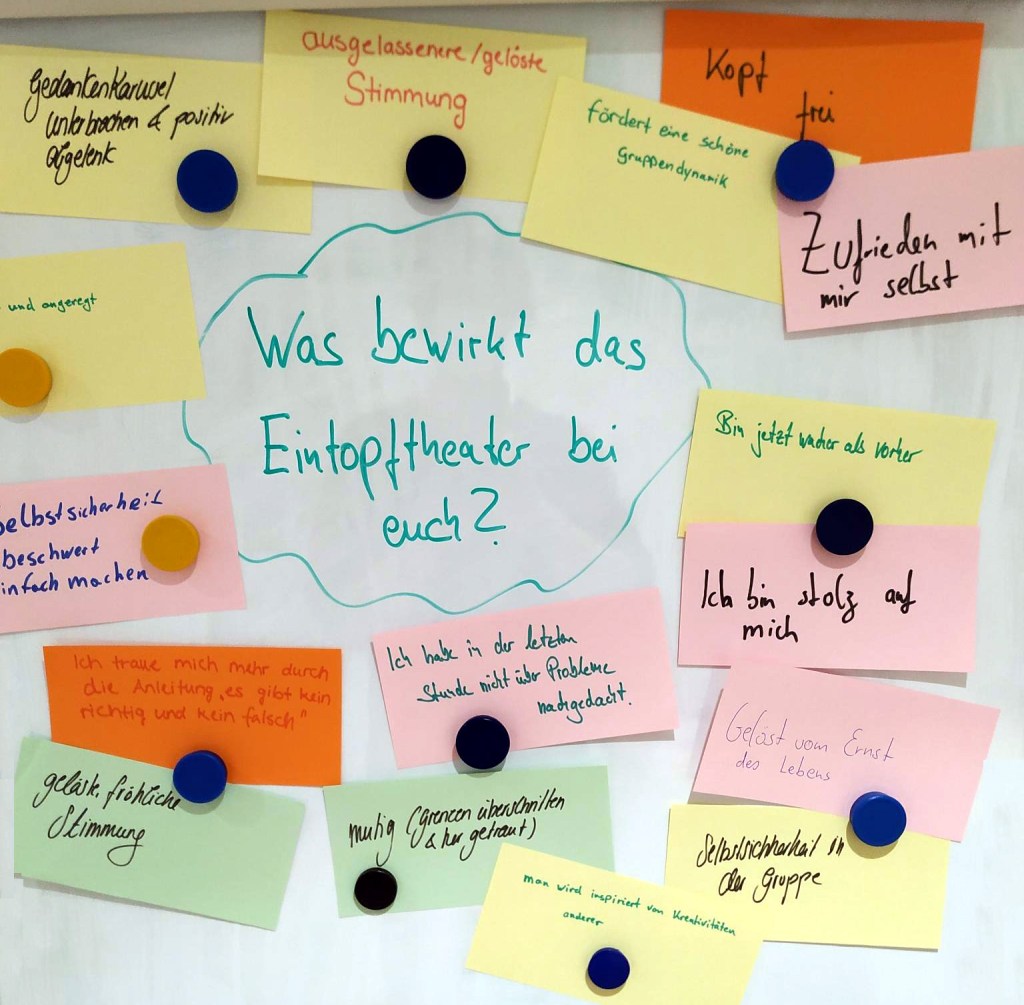 Gedankenkarusel
unterbrochen & positiv
abgelenk
ausgelassenere/gelöste
Stimmung
fördert eine schöne
Gruppendynamik
Kopf
frei
Zufrieden mit
mir selbst
und angeregt
Was bewirkt das
Eintopftheater bei
euch?
Bin jetzt wacher als vorher
Selbstsicherheit
beschwert
infach machen
Ich bin stolz auf
mich
Ich traue mich mehr durch
die Anleitung „es gibt kein
richtig und kein falsch"
Ich habe in der letzten
Stunde nicht über Probleme
nachgedacht.
Gelöst vom Ernst
des Lebens
fröhliche
Stimmung
mutig (Grenzen überschritten
& getraut)
in
der Gruppe
man wird inspiriert von Kreativitäten
anderer